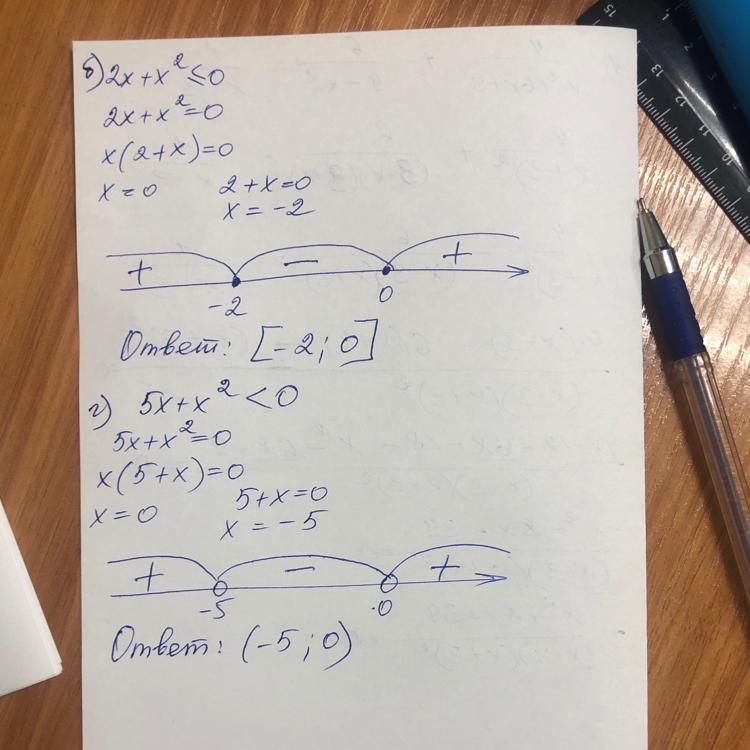 б) 2x+x²≤0
2x+x²=0
x(2+x)=0
x=0 2+x=0
x=-2
+ − +
-2 0
Ответ: [-2; 0]
г) 5x+x²<0
5x+x²=0
x(5+x)=0
x=0 5+x=0
x=-5
+ − +
-5 0
Ответ: (-5; 0)